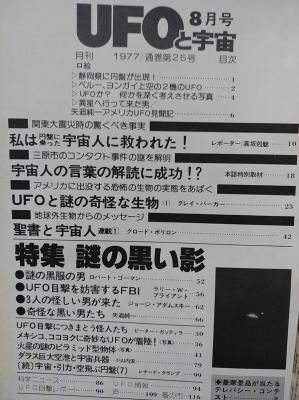 UFOと宇宙
8月号
月刊 1977/通巻第25号 目次
口絵
▷静岡県に円盤が出現! 1
▷ペルー、ヨンガイ上空の2機のUFO 2
▷UFOか? 何かを深く考えさせる写真 4
▷異星へ行って来た男
矢追純一アメリカUFO見聞記 6
関東大震災時の驚くべき事実
私は円盤に乗った宇宙人に救われた! レポーター/高坂剋魅 10
三原市のコンタクト事件の謎を解明
宇宙人の言葉の解読に成功!? 本誌特別取材 18
アメリカに出没する恐怖の生物の実態をあばく
UFOと謎の奇怪な生物(1) グレイ・バーカー 23
地球外生物からのメッセージ
聖書と宇宙人 連載① クロード・ボリロン 42
特集 謎の黒い影
●謎の黒服の男 ロバート・ゴーマン 52
●UFO目撃を妨害するFBI ラリー・W・ブライアント 56
●3人の怪しい男が来た ジョージ・アダムスキー 62
●奇怪な黒い男たち 矢追純一 66
UFO目撃につきまとう怪人たち ピーター・ガッティラ 30
メキシコ、ココヨクに奇妙なUFOが着陸!(写真) 36
火星の謎のピラミッド型物体(写真) 41
ダラス巨大空港と宇宙兵器 79
(続)宇宙・引力・空飛ぶ円盤(7) レナード・クランプ 94
科学ニュース 86
UFO目撃レポート 90
UFO情報 44
声 109
風の市 116
★豪華景品が当たるテレパシー・コンテスト